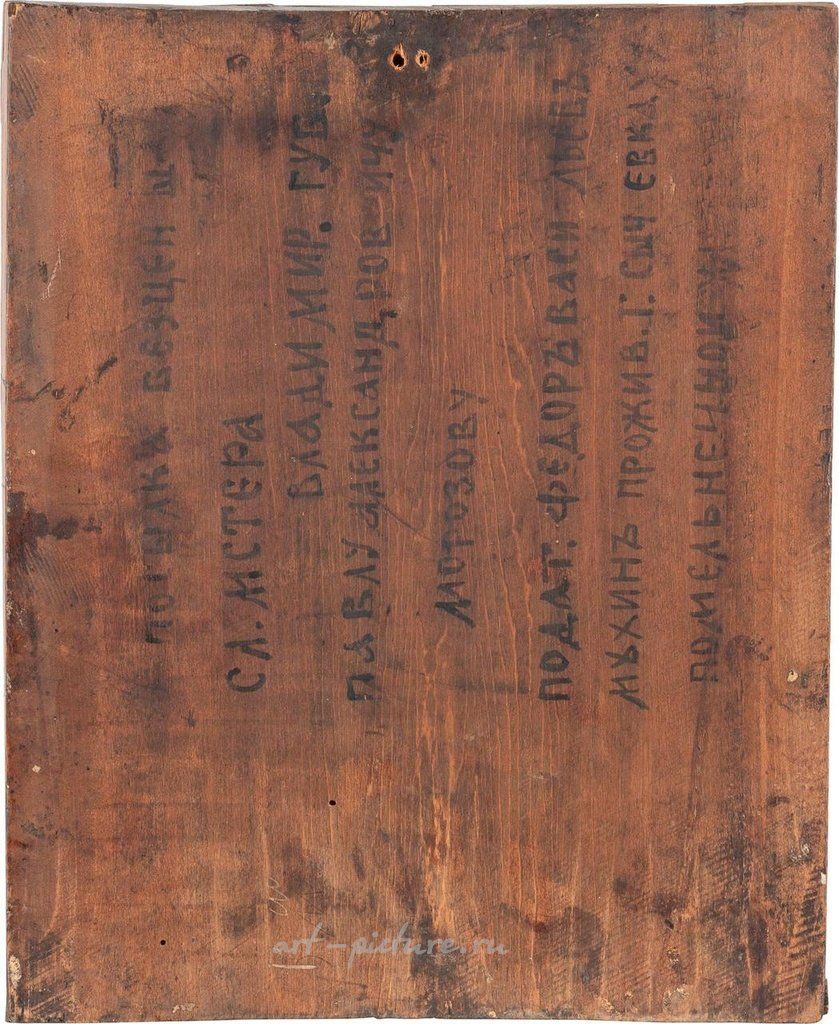 ПОСЫЛКА БЕЗЦЕН
СЛ. МСТЕРА
ВЛАДИМИР. ГУБ.
ПАВЛУ АЛЕКСАНДРОВИЧУ
МОРОЗОВУ
ПОДАТ. ФЕДОРЪ ВАСИЛЬЕВЪ
МУХИНЪ ПРОЖИВ. Г.
art-picture.ru